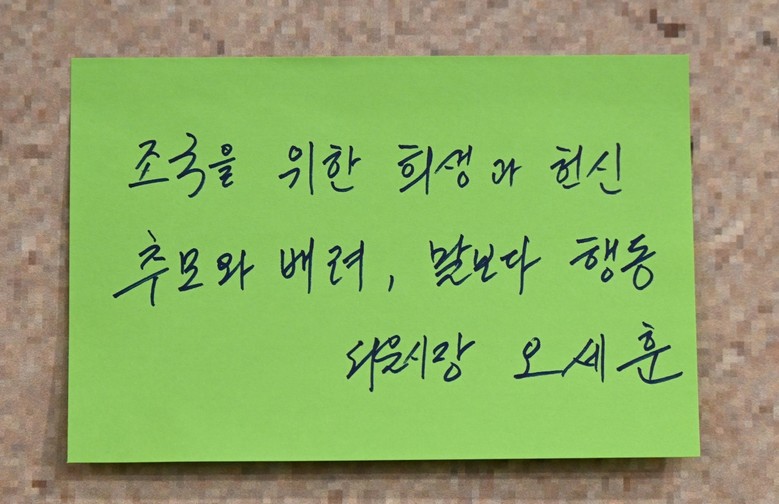 조국을 위한 희생과 헌신
추모와 배려, 말보다 행동
서울시장 오세훈